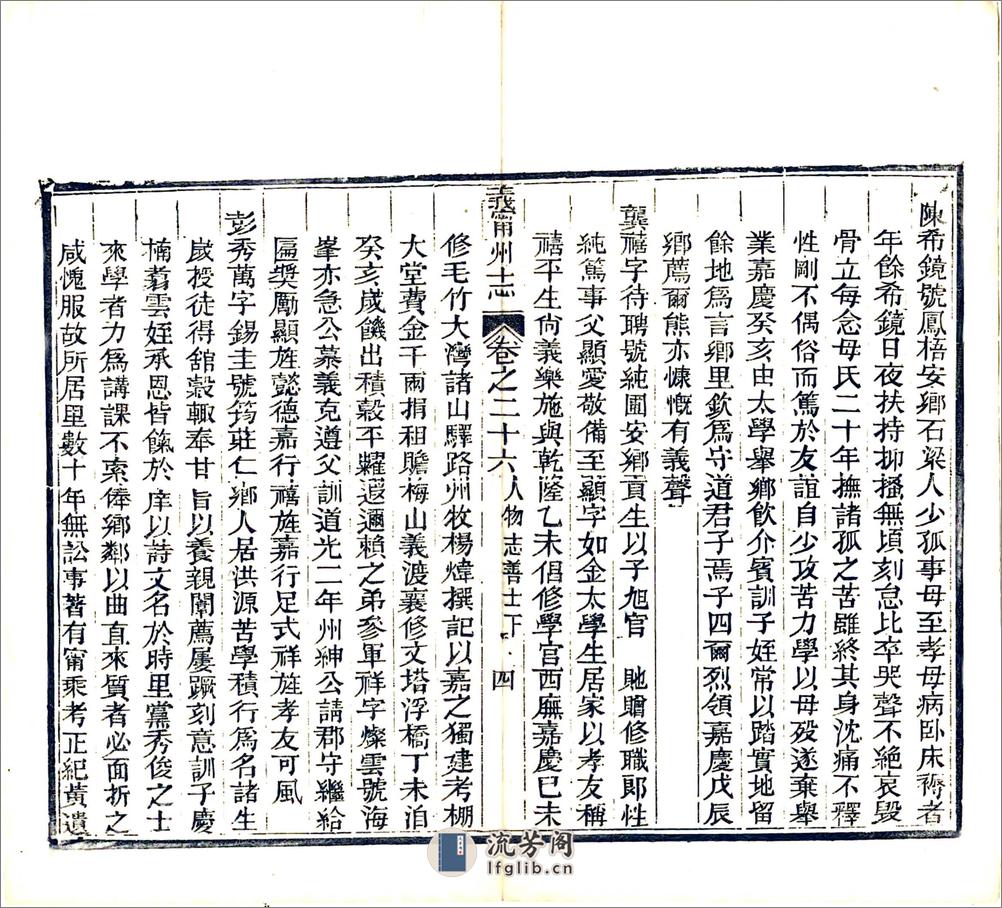 陳希鏡號鳳梧安鄉石梁人少孤事母至孝母病卧床褥者
年餘希鏡日夜扶持抑搔無頃刻怠比卒哭聲不絶哀毁
骨立每念母氏二十年撫諸孤之苦雖終其身沈痛不釋
性剛不偶俗而篤於友誼自少攻苦力學以母殁遂棄舉
業嘉慶癸亥由太學舉鄉飲介賓訓子姪常以踏實地留
餘地爲言鄉里欽爲守道君子焉子四爾烈領嘉慶戊辰
鄉薦爾熊亦慷慨有義聲
龔禧字待聘號純圃安鄉貢生以子旭官 貤贈修職郎性
純篤事父顯愛敬備至顯字如金太學生居家以孝友稱
禧平生尚義樂施與乾隆乙未倡修學宫西廡嘉慶己未
義甯州志 卷之二十六 人物志善士下 四
修毛竹大灣諸山驛路州牧楊煒撰記以嘉之獨建考棚
大堂費金千兩捐租贍梅山義渡襄修文塔浮橋丁未洎
癸亥歲饑出積穀平糶遐邇賴之弟參軍祥字燦雲號海
峯亦急公慕義克遵父訓道光二年州紳公請郡守繼給
匾奬勵顯旌懿德嘉行禧旌嘉行足式祥旌孝友可風
彭秀萬字錫圭號筠莊仁鄉人居洪源苦學積行爲名諸生
歲授徒得舘穀輙奉甘旨以養親闈薦屢蹶刻意訓子慶
楠翥雲姪承恩皆餼於庠以詩文名於時里黨秀俊之士
來學者力爲講課不索俸鄉鄰以曲直來質者必面折之
咸愧服故所居里數十年無訟事著有甯乘考正紀黄遺
流芳阁
lfglib.cn